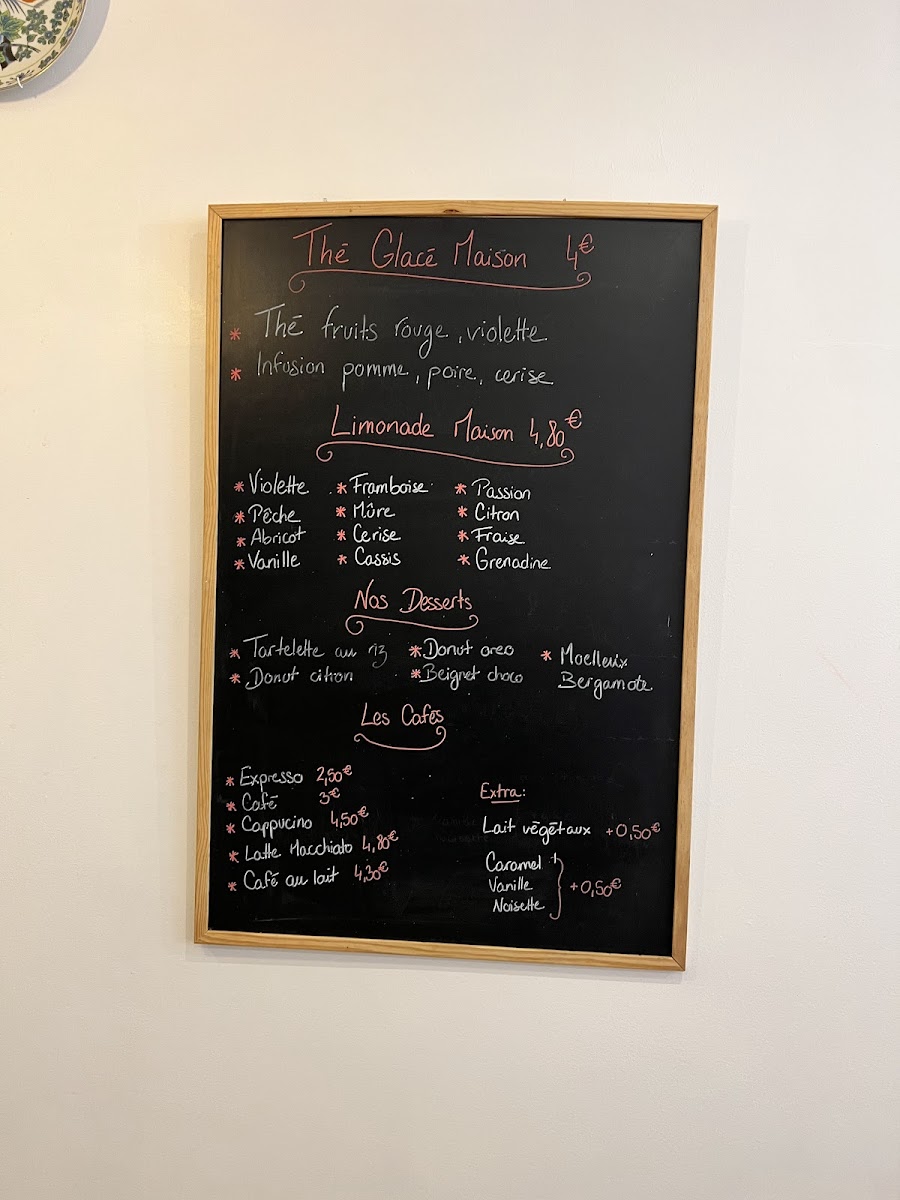 Thé Glacé Maison 4€
* Thé fruits rouge, violette
* Infusion pomme, poire, cerise
Limonade Maison 4,80€
* Violette * Framboise * Passion
* Pêche * Mûre * Citron
* Abricot * Cerise * Fraise
* Vanille * Cassis * Grenadine
Nos Desserts
* Tartelette au riz * Donut oreo * Moelleux
* Donut citron * Beignet choco Bergamote
Les Cafés
* Expresso 2,50€
* Café 3€
* Cappucino 4,50€
* Latte Macchiato 4,80€
* Café au lait 4,30€
Extra:
Lait végétaux +0,50€
Caramel
Vanille +0,50€
Noisette